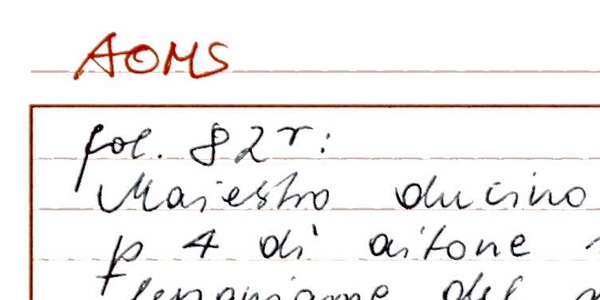 AOMS
fol. 82r:
Maiestro ducino
p 4 di aitone
del